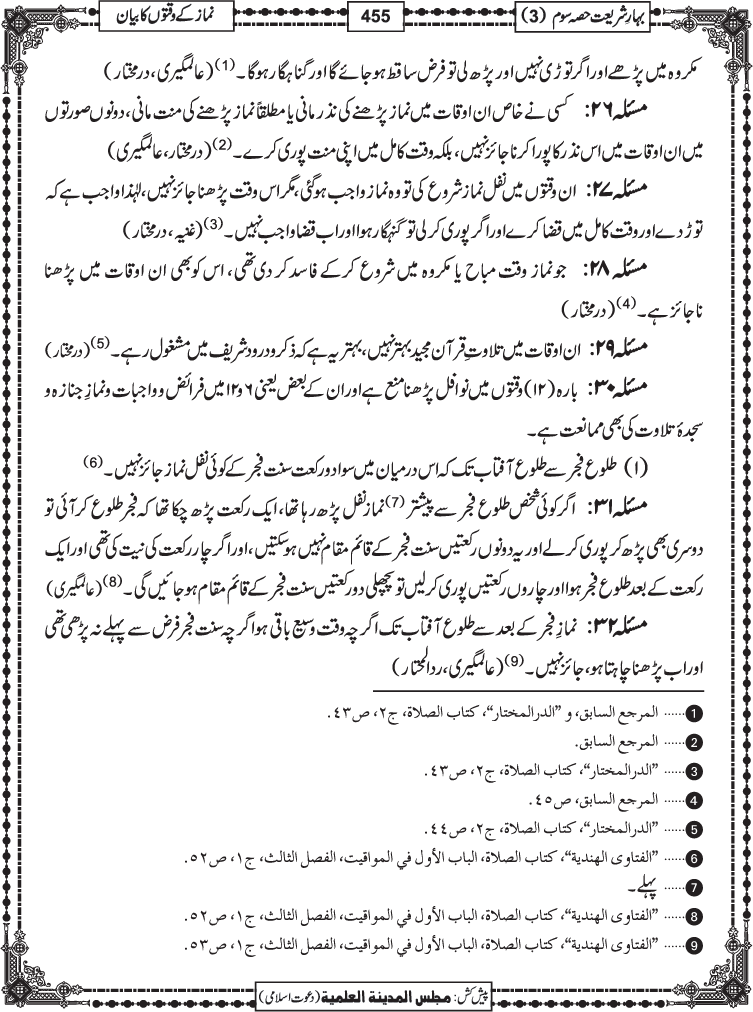 بہارِ شریعت حصہ سوم (3)
455
نماز کے وقتوں کا بیان
مکروہ میں پڑھے اور اگر توڑی نہیں اور پڑھ لی تو فرض ساقط ہو جائے گا اور گناہگار ہوگا۔(1) (عالمگیری، درمختار)
مسئلہ ۲۶: کسی نے خاص ان اوقات میں نماز پڑھنے کی نذر مانی یا مطلقاً نماز پڑھنے کی منت مانی، دونوں صورتوں
میں ان اوقات میں اس نذر کا پورا کرنا جائز نہیں، بلکہ وقت کامل میں اپنی منت پوری کرے۔(2) (درمختار، عالمگیری)
مسئلہ ۲۷: ان وقتوں میں نفل نماز شروع کی تو وہ نماز واجب ہوگئی، مگر اس وقت پڑھنا جائز نہیں، لہٰذا واجب ہے کہ
توڑ دے اور وقت کامل میں قضا کرے اور اگر پوری کر لی تو گنہگار ہوا اور اب قضا واجب نہیں۔(3) (غنیہ، درمختار)
مسئلہ ۲۸: جو نماز وقت مباح یا مکروہ میں شروع کر کے فاسد کر دی تھی، اس کو بھی ان اوقات میں پڑھنا
ناجائز ہے۔(4) (درمختار)
مسئلہ ۲۹: ان اوقات میں تلاوتِ قرآن مجید بہتر نہیں، بہتر یہ ہے کہ ذکر و درود شریف میں مشغول رہے۔(5) (درمختار)
مسئلہ ۳۰: بارہ (۱۲) وقتوں میں نوافل پڑھنا منع ہے اور ان کے بعض یعنی ۶ و ۱۲ میں فرائض و واجبات و نمازِ جنازہ و
سجدۂ تلاوت کی بھی ممانعت ہے۔
(۱) طلوعِ فجر سے طلوعِ آفتاب تک کہ اس درمیان میں سوا دو رکعت سنت فجر کے کوئی نفل نماز جائز نہیں۔(6)
مسئلہ ۳۱: اگر کوئی شخص طلوع فجر سے پیشتر(7) نماز نفل پڑھ رہا تھا، ایک رکعت پڑھ چکا تھا کہ فجر طلوع کر آئی تو
دوسری بھی پڑھ کر پوری کر لے اور یہ دونوں رکعتیں سنت فجر کے قائم مقام نہیں ہو سکتیں، اور اگر چار رکعت کی نیت کی تھی اور ایک
رکعت کے بعد طلوع فجر ہوا اور چاروں رکعتیں پوری کر لیں تو پچھلی دو رکعتیں سنت فجر کے قائم مقام ہو جائیں گی۔(8) (عالمگیری)
مسئلہ ۳۲: نمازِ فجر کے بعد سے طلوع آفتاب تک اگرچہ وقت وسیع باقی ہو اگرچہ سنت فجر فرض سے پہلے نہ پڑھی تھی
اور اب پڑھنا چاہتا ہو، جائز نہیں۔(9) (عالمگیری، ردالمحتار)
1 ...... المرجع السابق، و ”الدرالمختار“، كتاب الصلاة، ج٢، ص٤٣.
2 ...... المرجع السابق.
3 ...... ”الدرالمختار“، كتاب الصلاة، ج٢، ص٤٣.
4 ...... المرجع السابق، ص٤٥.
5 ...... ”الدرالمختار“، كتاب الصلاة، ج٢، ص٤٤.
6 ...... ”الفتاوى الهندية“، كتاب الصلاة، الباب الأول في المواقيت، الفصل الثالث، ج١، ص٥٢.
7 ...... پہلے۔
8 ...... ”الفتاوى الهندية“، كتاب الصلاة، الباب الأول في المواقيت، الفصل الثالث، ج١، ص٥٢.
9 ...... ”الفتاوى الهندية“، كتاب الصلاة، الباب الأول في المواقيت، الفصل الثالث، ج١، ص٥٣.
پیش کش: مجلس المدینة العلمیة (دعوت اسلامی)